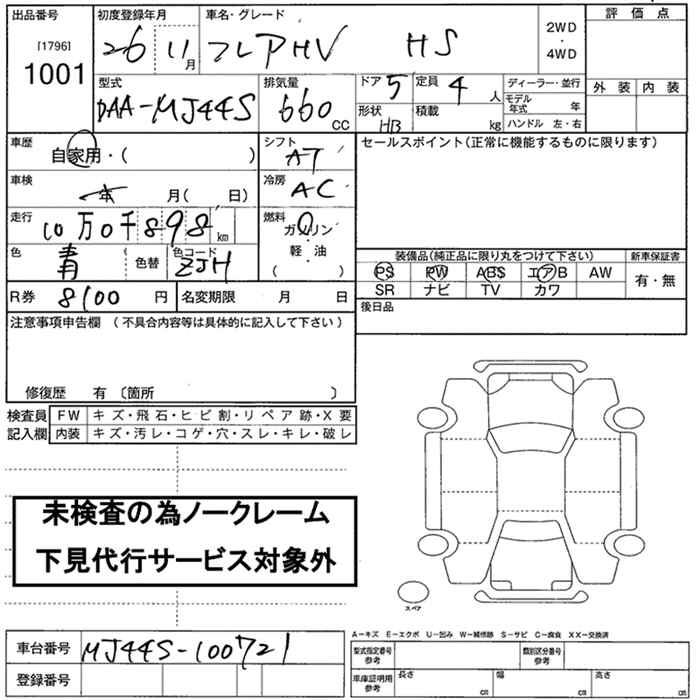 出品番号 初度登録年月 車名・グレード 評価点
[1796] 1001 26 11月 フレアHV HS 2WD・4WD
外装 内装
型式 DAA-MJ44S 排気量 660CC ドア 5 定員 4人 ディーラー・並行
形状 HB 積載 kg モデル年式 年
ハンドル 左・右
車歴 自家用・( ) シフト AT セールスポイント(正常に機能するものに限ります)
車検 年 月( 日) 冷房 AC
走行 10万0千898km 燃料 ガソリン
軽・油
( )
色 青 色替 色コード ZJH
装備品(純正品に限り丸をつけて下さい) 新車保証書
PS PW ABS エアB AW 有・無
SR ナビ TV カワ
R券 8100円 名変期限 月 日 後日品
注意事項申告欄(不具合内容等は具体的に記入して下さい)
修復歴 有〔箇所 〕
検査員 FW キズ・飛石・ヒビ割・リペア跡・X要
記入欄 内装 キズ・汚レ・コゲ・穴・スレ・キレ・破レ
未検査の為ノークレーム
下見代行サービス対象外
スペア
A-キズ E-エクボ U-凹み W-補修跡 S-サビ C-腐食 XX-交換済
車台番号 MJ44S-100721 型式指定番号 参考 類別区分番号 参考
登録番号 車庫証明用 参考 長さ cm 幅 cm 高さ cm